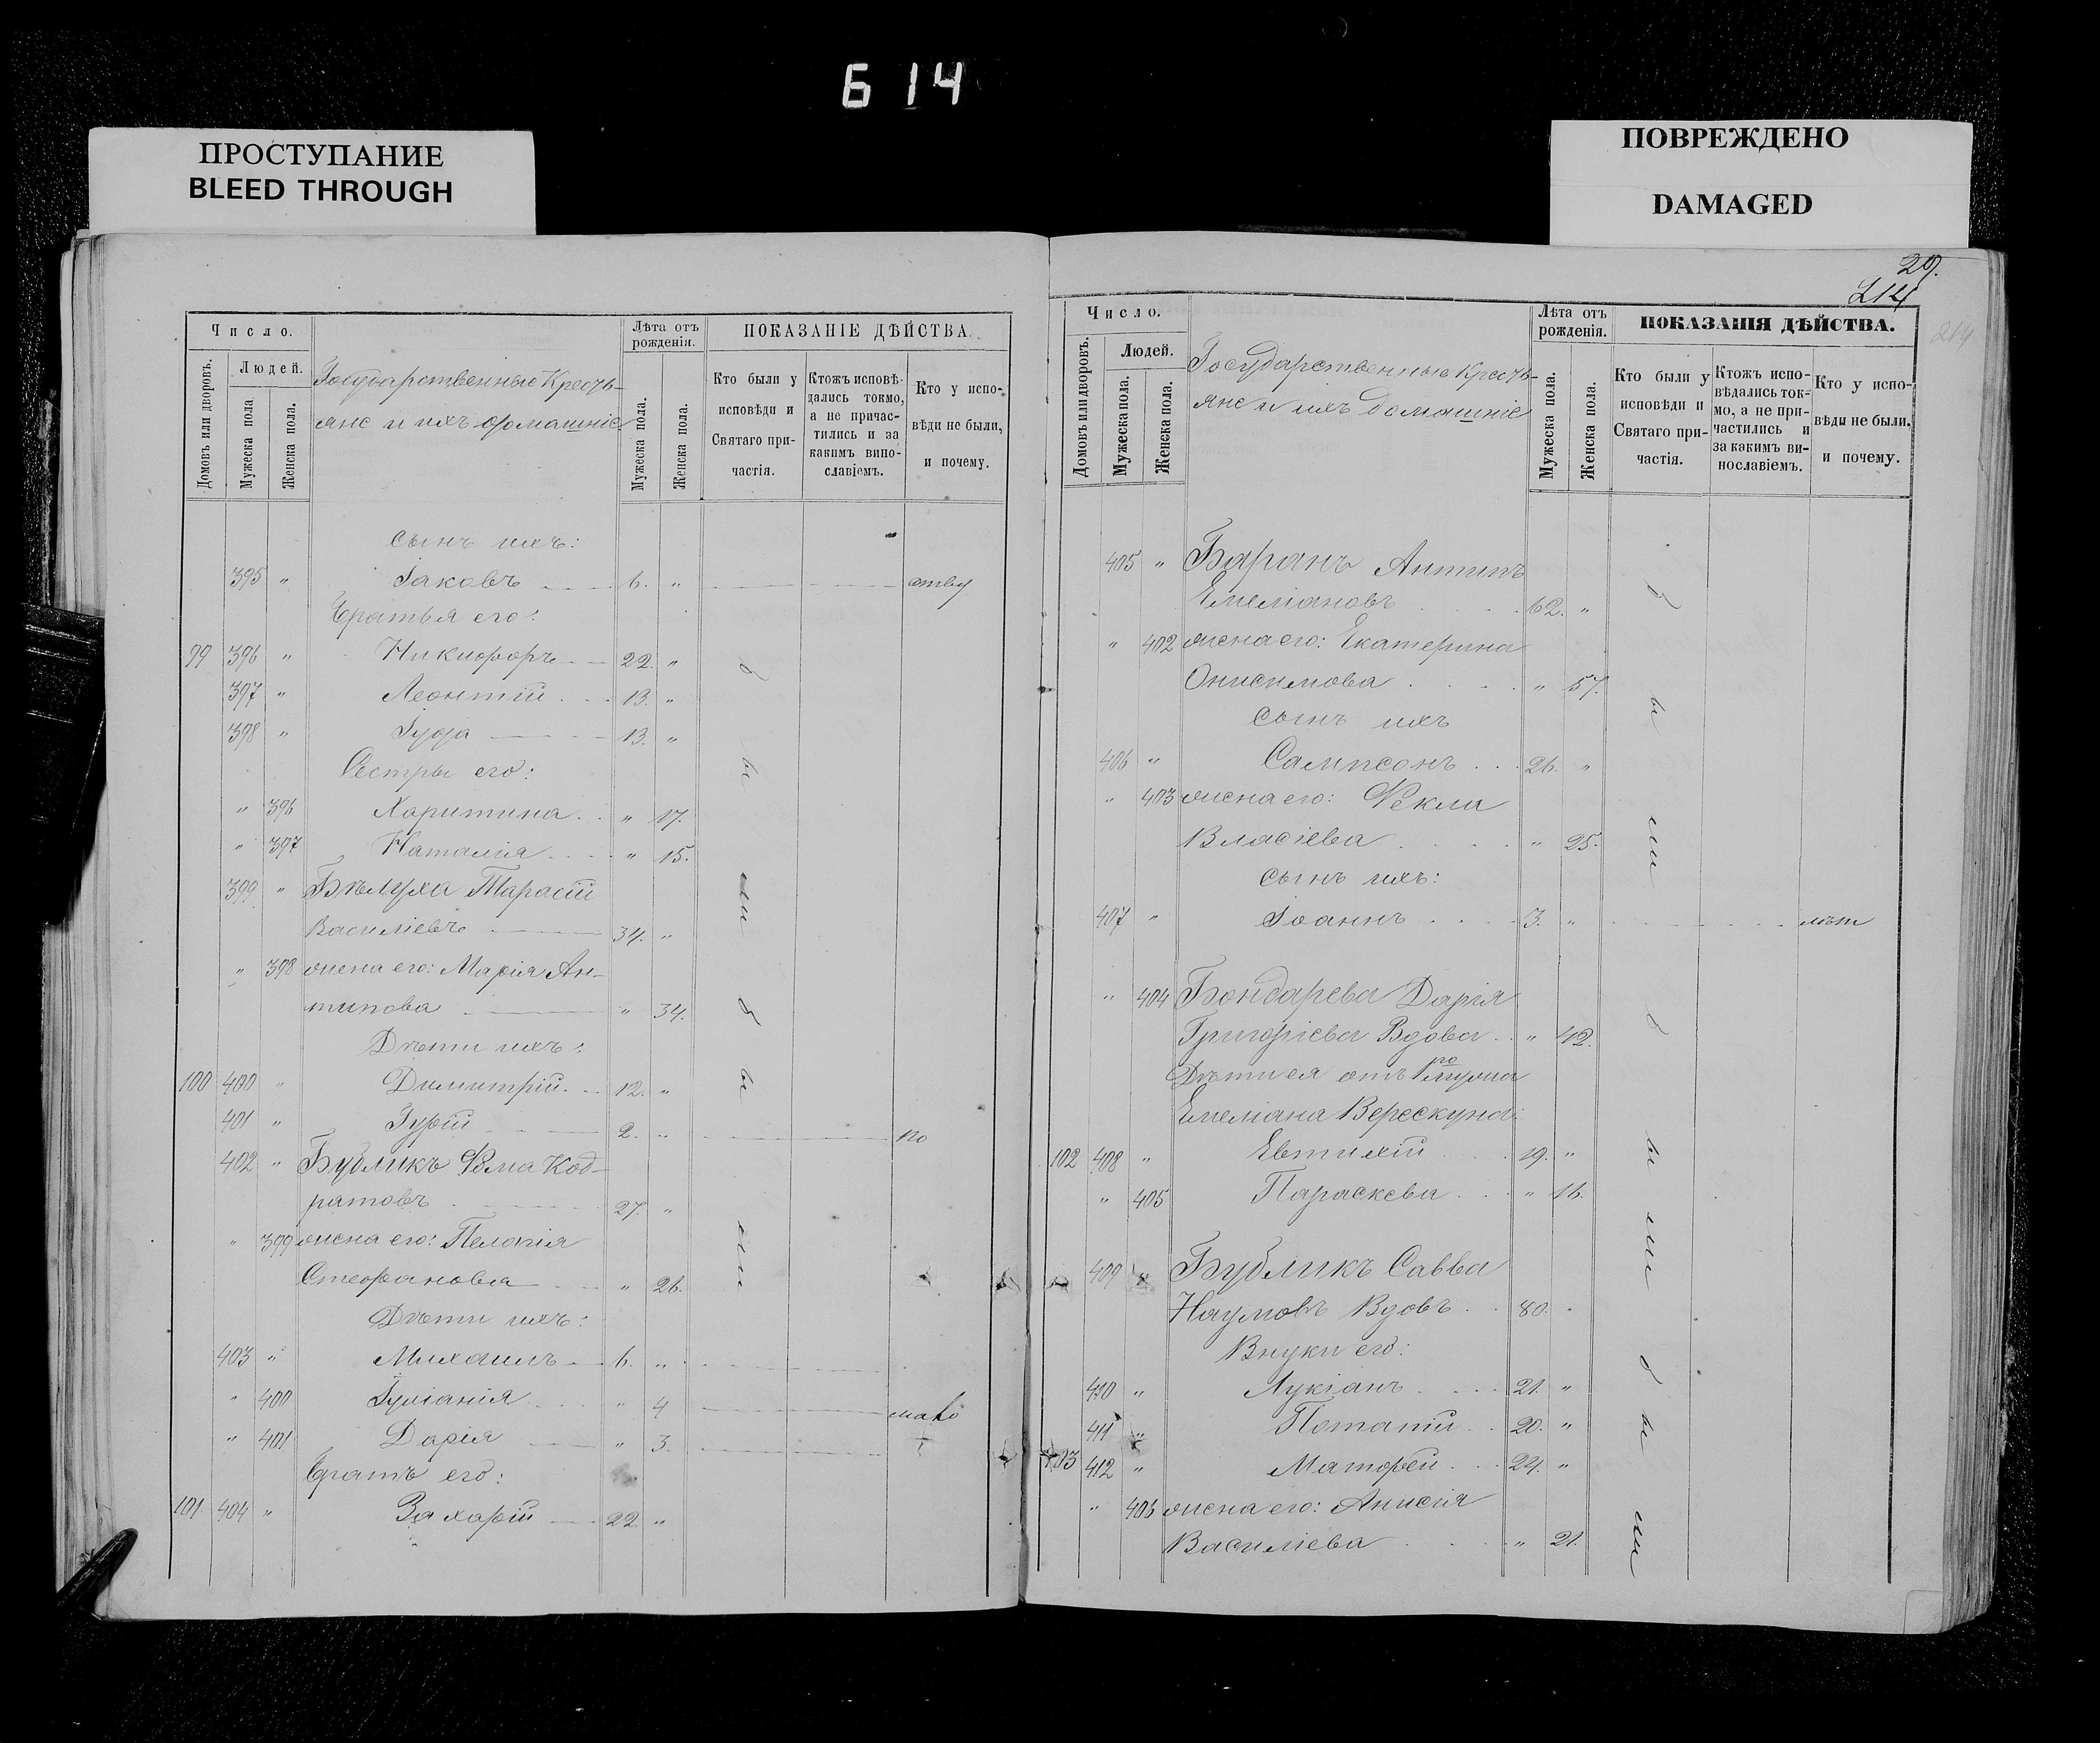 Б 14
ПРОСТУПАНИЕ
BLEED THROUGH
ПОВРЕЖДЕНО
DAMAGED
Число.
Людей.
Домовъ или дворовъ.
Мужеска пола
Женска пола.
Государственные Кресть-
яне и ихъ домашніе
Лѣта отъ рожденія.
Мужеска пола.
Женска пола.
ПОКАЗАНІЕ ДѢЙСТВА
Кто были у исповѣди и Святаго при-частія.
Ктожъ исповѣ-дались токмо, а не причас-тились и за какимъ вино-славіемъ.
Кто у испо-вѣди не были, и почему.
сынъ ихъ:
395 " Іаковъ 6. " отву
Братья его:
99 396 " Никифоръ 22. "
397 " Леонтій 13. "
398 " Іуда 13. "
Сестры его:
" 396 Харитина " 17.
" 397 Наталія " 15.
399 " Бѣлуха Тарасій
Василіевъ 34. "
" 398 жена его: Марія Ан-
типова " 34.
Дѣти ихъ:
100 400 " Димитрій 12. "
401 " Гурій 2. " по
402 " Бубликъ Ѳома Код-
ратовъ 27. "
" 399 жена его: Пелагія
Стефановна " 26.
Дѣти ихъ:
403 " Михаилъ 6. "
" 400 Іуліанія " 4 мало
" 401 Дарія " 3.
Братъ его:
101. 404 " Захарій 22 "
были
были
29.
214
214
Число.
Людей.
Домовъ или дворовъ.
Мужеска пола.
Женска пола.
Государственные Кресть-
яне и ихъ домашніе
Лѣта отъ рожденія.
Мужеска пола.
Женска пола.
ПОКАЗАНІЯ ДѢЙСТВА.
Кто были у исповѣди и Святаго при-частія.
Ктожъ испо-вѣдались ток-мо, а не при-частились и за какимъ ви-нославіемъ.
Кто у испо-вѣди не были. и почему.
405 " Баранъ Антипъ
Емеліановъ 62. "
" 402 жена его: Екатерина
Онисимова " 57.
сынъ ихъ
406 " Сампсонъ 26. "
" 403 жена его: Ѳекла
Власіева " 25.
сынъ ихъ:
407 " Іоаннъ 3. " лѣт
" 404 Бондарева Дарія
Григоріева Вдова " 42.
Дѣти ея отъ
Емеліана Верескуна:
102 408 " Евтихій 19. "
" 405 Параскева " 16.
409 " Бубликъ Савва
Наумовъ Вдовъ 80. "
Внуки его:
410 " Лукіанъ 21. "
411 " Потапій 20. "
103 412 " Матѳей 24. "
" 406 жена его: Анисія
Василіева " 21.
были
были
были